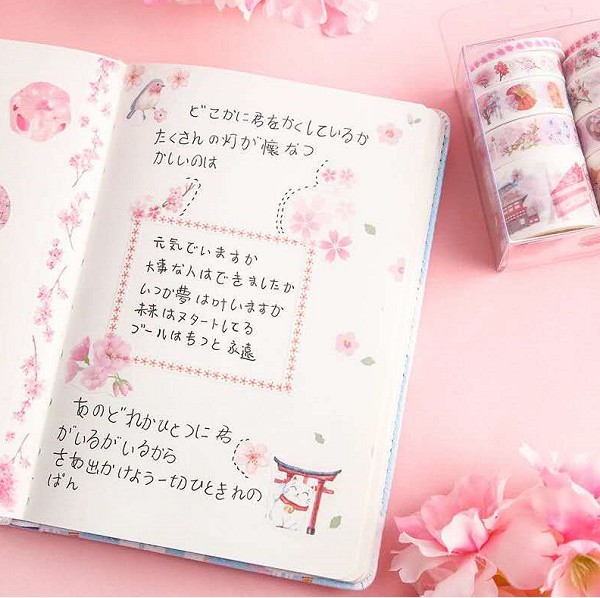 どこかに君をかくしているか
たくさんの灯が懐なつ
かしいのは
元気でいますか
大事な人はできましたか
いつか夢は叶いますか
未来はスタートしてる
ゴールはもっと永遠
あのどれかひとつに君
がいるがいるから
さあ出かけよう一切ひときれの
ぱん